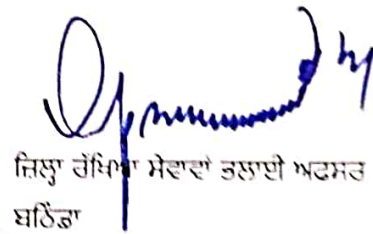 ਜ਼ਿਲ੍ਹਾ ਰੱਖਿਆ ਸੇਵਾਵਾਂ ਭਲਾਈ ਅਫਸਰ
ਬਠਿੰਡਾ